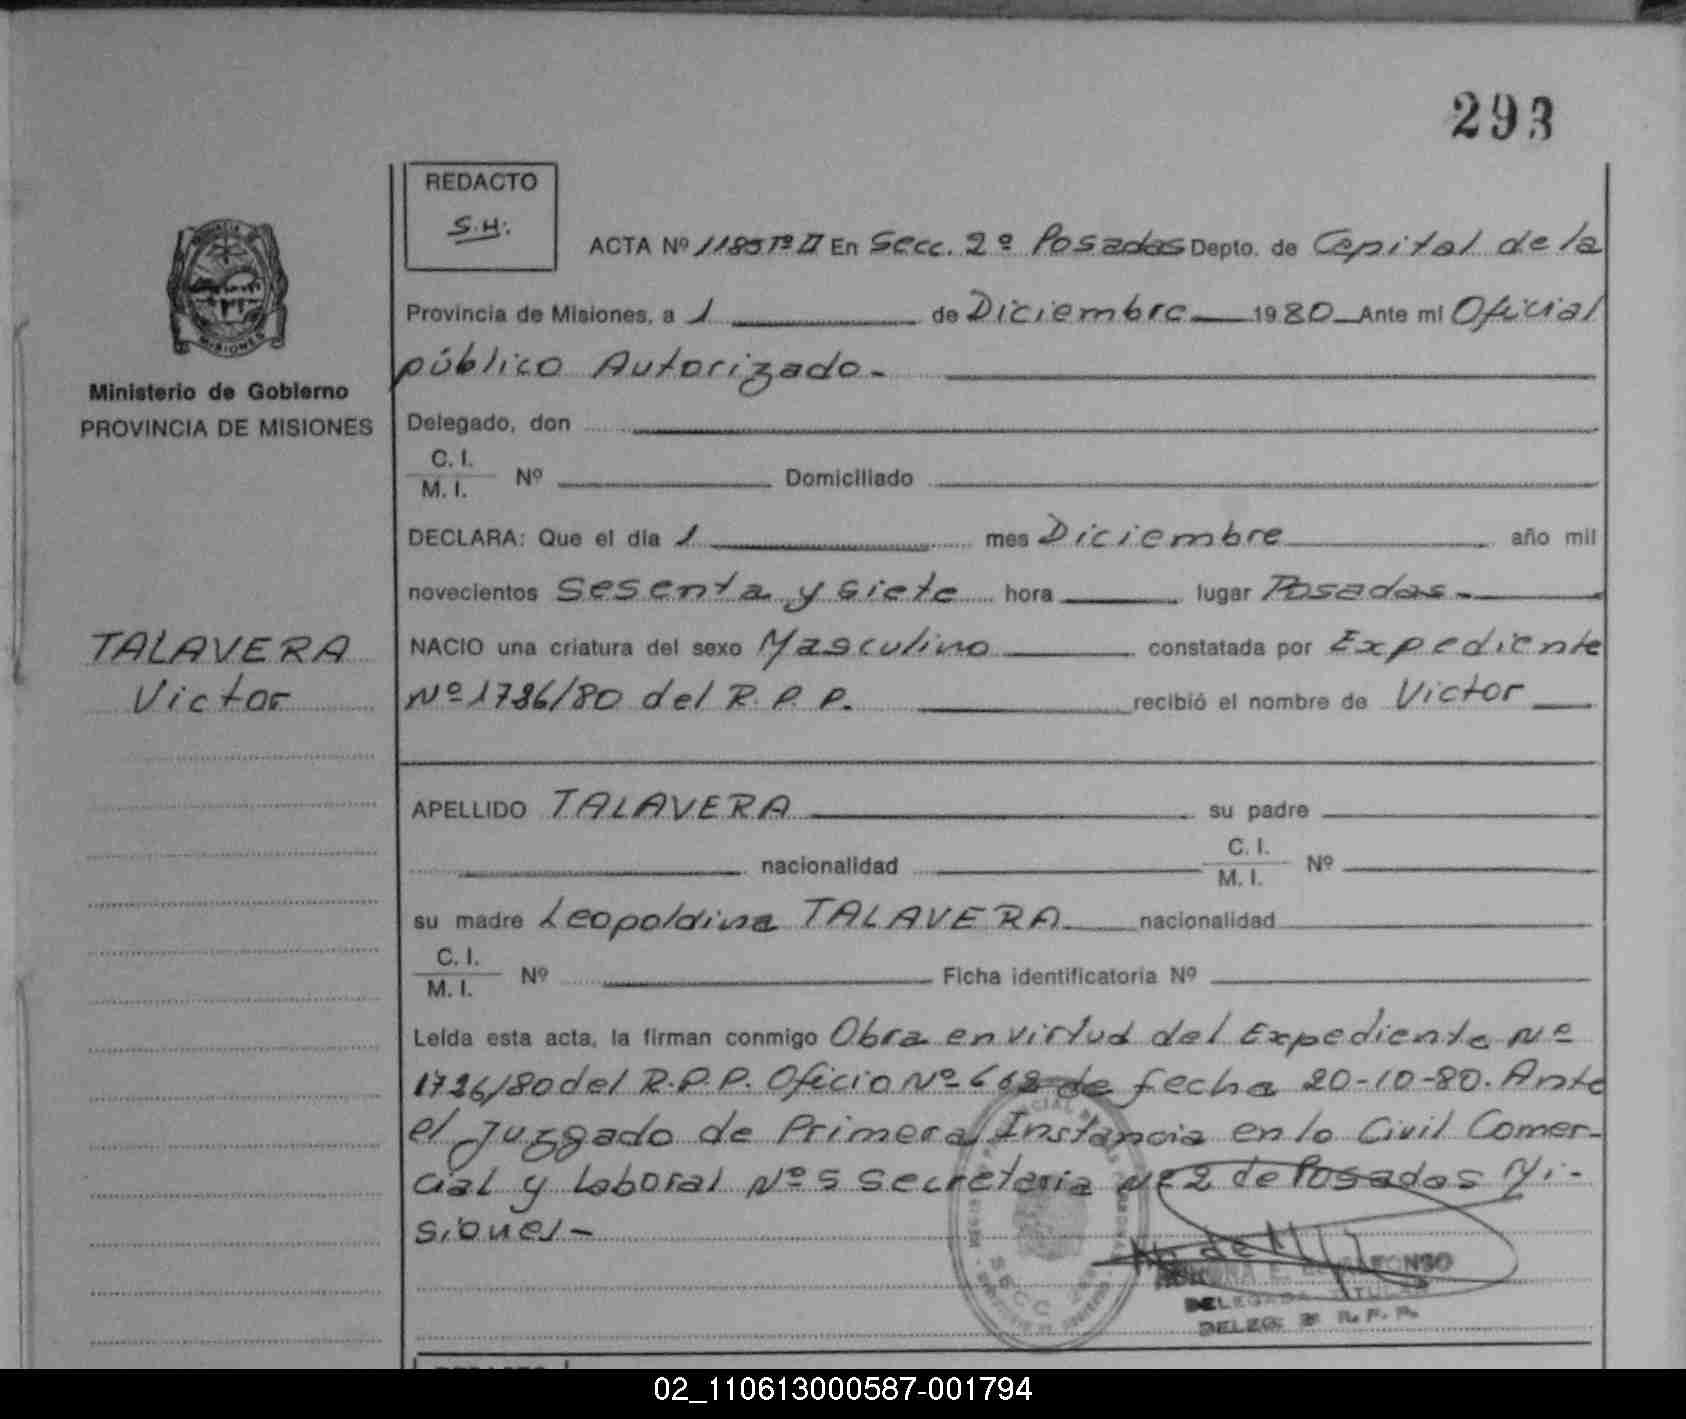 293
REDACTO
S.H.
ACTA Nº 1185 Tº II En Secc. 2º Posadas Depto. de Capital de la
Provincia de Misiones, a 1 de Diciembre 1980 Ante mi Oficial
público Autorizado.-
MISIONES
Ministerio de Gobierno
PROVINCIA DE MISIONES
Delegado, don
C. I.
M. I. Nº Domiciliado
DECLARA: Que el día 1 mes Diciembre año mil
novecientos Sesenta y Siete hora lugar Posadas.-
TALAVERA
Victor
NACIO una criatura del sexo Masculino constatada por Expediente
Nº 1736/80 del R. P. P. recibió el nombre de Victor
APELLIDO TALAVERA su padre
nacionalidad C. I.
M. I. Nº
su madre Leopoldina TALAVERA nacionalidad
C. I.
M. I. Nº Ficha identificatoria Nº
Leída esta acta, la firman conmigo Obra en virtud del Expediente Nº
1736/80 del R.P.P. Oficio Nº de fecha 20-10-80. Ante
el Juzgado de Primera Instancia en lo Civil Comer-
cial y Laboral Nº 5 Secretaria Nº 2 de Posadas Mi-
siones-
SECC
DELEGADA TITULAR
R. P. P.
02_110613000587-001794